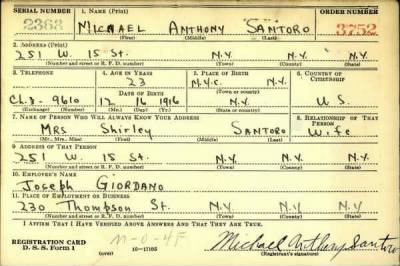 SERIAL NUMBER 1. NAME (Print) ORDER NUMBER
2368 MICHAEL ANTHONY SANTORO 3752
(First) (Middle) (Last)
2. ADDRESS (Print)
251 W. 15 St. N.Y. N.Y. N.Y.
(Number and street or R. F. D. number) (Town) (County) (State)
3. TELEPHONE 4. AGE IN YEARS 5. PLACE OF BIRTH 6. COUNTRY OF CITIZENSHIP
23 N.Y.C. N.Y.
DATE OF BIRTH (Town or county)
CL.3-9610 12 16 1916 N.Y. U.S.
(Exchange) (Number) (Mo.) (Day) (Yr.) (State or country)
7. NAME OF PERSON WHO WILL ALWAYS KNOW YOUR ADDRESS 8. RELATIONSHIP OF THAT PERSON
MRS Shirley SANTORO Wife
(Mr., Mrs., Miss) (First) (Middle) (Last)
9. ADDRESS OF THAT PERSON
251 W. 15 St. N.Y. N.Y. N.Y.
(Number and street or R. F. D. number) (Town) (County) (State)
10. EMPLOYER'S NAME
JOSEPH GIORDANO
11. PLACE OF EMPLOYMENT OR BUSINESS
230 Thompson St. N.Y. N.Y. N.Y.
(Number and street or R. F. D. number) (Town) (County) (State)
I AFFIRM THAT I HAVE VERIFIED ABOVE ANSWERS AND THAT THEY ARE TRUE.
REGISTRATION CARD Michael Anthony Santoro
D. S. S. Form 1 (over) 16-17105 (Registrant's signature)